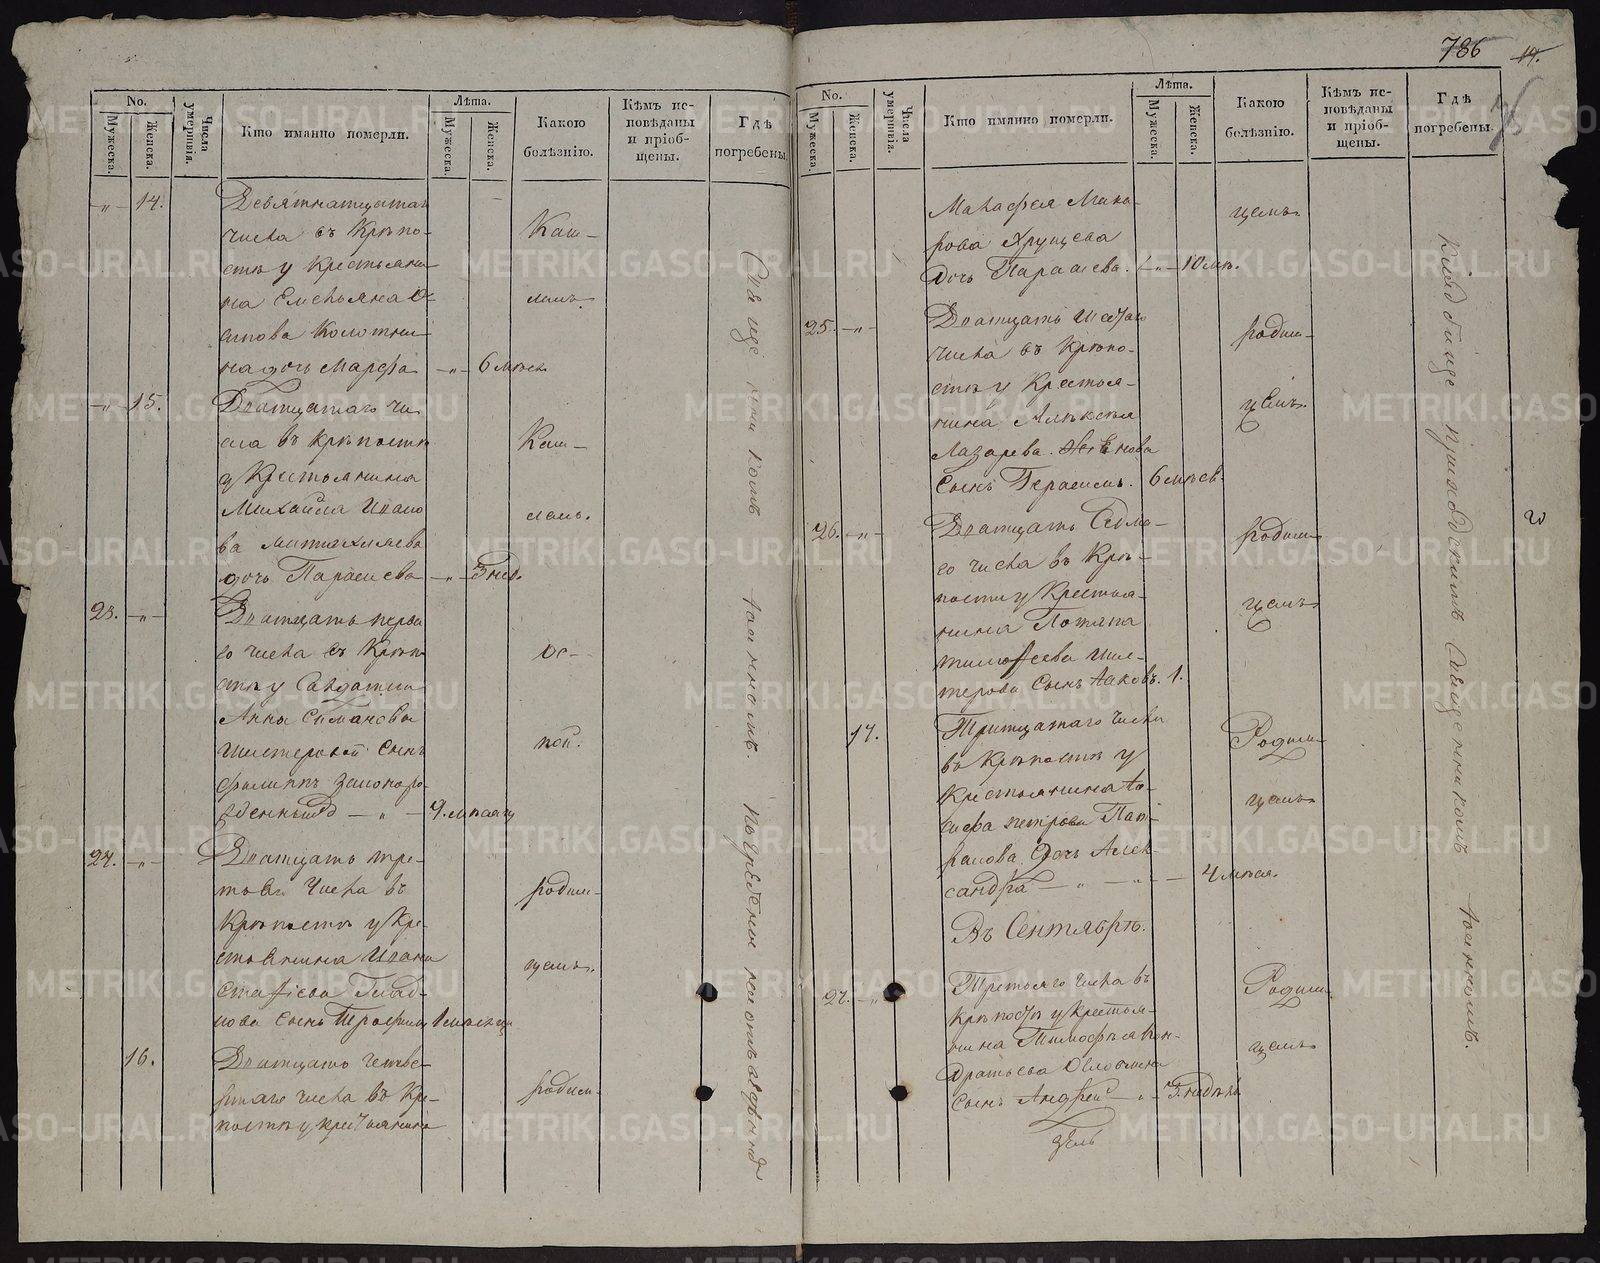 786 14.
No.
Мужеска.
Женска.
Числа умершія.
Кто имянно померли.
Лѣта.
Мужеска.
Женска.
Какою болѣзнію.
Кѣмъ исповѣданы и пріобщены.
Гдѣ погребены.
14.
Девятнатцатаго
числа въ Крѣпо-
стѣ у Крестьяни
на Емельяна О
сипова
на дочь Марфа 6 мѣсе.
Каш-
лемъ.
15.
Дватцатаго чи
сла въ Крѣпостѣ
у Крестьянина
Михайла Ивано
ва
дочь Параскева 3 нед.
Каш-
лемъ.
23.
Дватцать перва
го числа въ Крѣпо
стѣ у Салдатки
Анны Симановы
Шистеровой сынъ
Филиппъ законоро
жденный 9. мѣсяцъ
ос-
пой.
24.
Дватцать тре-
тьяго числа въ
Крѣпостѣ у Кре-
стьянина Ивана
нова сынъ Трофимъ 1 мѣсяцъ
родим-
цемъ.
16.
Дватцать четве-
ртаго числа въ Кре-
постѣ у крестьянина
родим-
Священникомъ Иоанномъ.
Погребены на отведенномъ
No.
Мужеска.
Женска.
Числа умершія.
Кто имянно померли.
Лѣта.
Мужеска.
Женска.
Какою болѣзнію.
Кѣмъ исповѣданы и пріобщены.
Гдѣ погребены.
Макафея Мака-
рова Хрущева
дочь Параскева. 10 мѣ.
цемъ.
25.
Дватцать шестаго
числа въ Крѣпо-
стѣ у Крестья-
нина Алѣксѣя
Лазарева
сынъ Герасимъ. 6 мѣсе.
родим-
цемъ.
26.
Дватцать седма-
го числа въ Крѣ-
пости у Крестья-
нина Потапа
Тимофеева Шис-
терова сынъ Иаковъ. 1.
родим-
цемъ.
17.
Тритцатаго числа
въ Крѣпостѣ у
Крестьянина Ио-
сифа Петрова
дочь Алек-
сандра 4 мѣся.
Родим-
цемъ.
Въ Сентябрѣ.
27.
Третьяго числа въ
Крѣпостѣ у Крестья-
нина Тимофея Кон-
дратьева
сынъ Андрей 3. недѣль
Родим-
цемъ.
Кладбище приходскимъ Священникомъ Иоанномъ.
METRIKI.GASO-URAL.RU